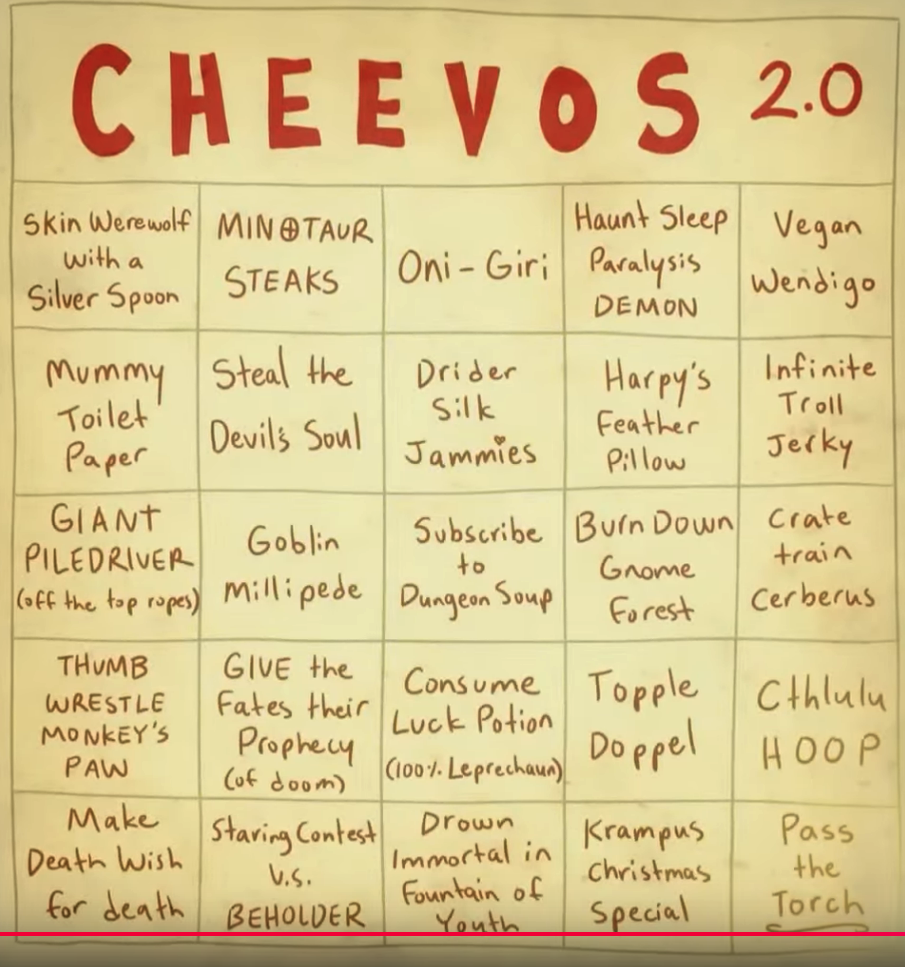 CHEEVOS 2.0
Skin Werewolf
with a
Silver Spoon
MINOTAUR
STEAKS
Oni-Giri
Haunt Sleep
Paralysis
DEMON
Vegan
Wendigo
Mummy
Toilet
Paper
Steal the
Devil's Soul
Drider
Silk
Jammies
Harpy's
Feather
Pillow
Infinite
Troll
Jerky
GIANT
PILEDRIVER
(off the top ropes)
Goblin
millipede
Subscribe
to
Dungeon Soup
Burn Down
Gnome
Forest
Crate
train
Cerberus
THUMB
WRESTLE
MONKEY'S
PAW
GIVE the
Fates their
Prophecy
(of doom)
Consume
Luck Potion
(100% Leprechaun)
Topple
Doppel
Cthlulu
HOOP
Make
Death Wish
for death
Staring Contest
V.S.
BEHOLDER
Drown
Immortal in
Fountain of
Youth
Krampus
Christmas
Special
Pass
the
Torch